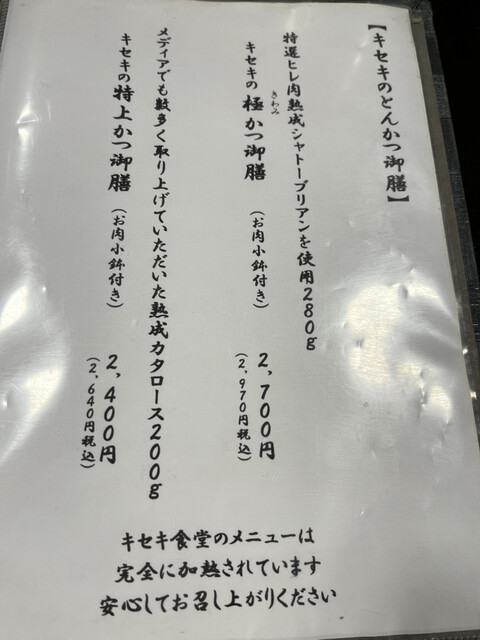 【キセキのとんかつ御膳】
特選ヒレ肉熟成シャトーブリアンを使用280g
きわみ
キセキの極かつ御膳(お肉小鉢付き)
2,700円
(2,970円税込)
メディアでも数多く取り上げていただいた熟成カタロース200g
キセキの特上かつ御膳(お肉小鉢付き)
2,400円
(2,640円税込)
キセキ食堂のメニューは
完全に加熱されています
安心してお召し上がりください